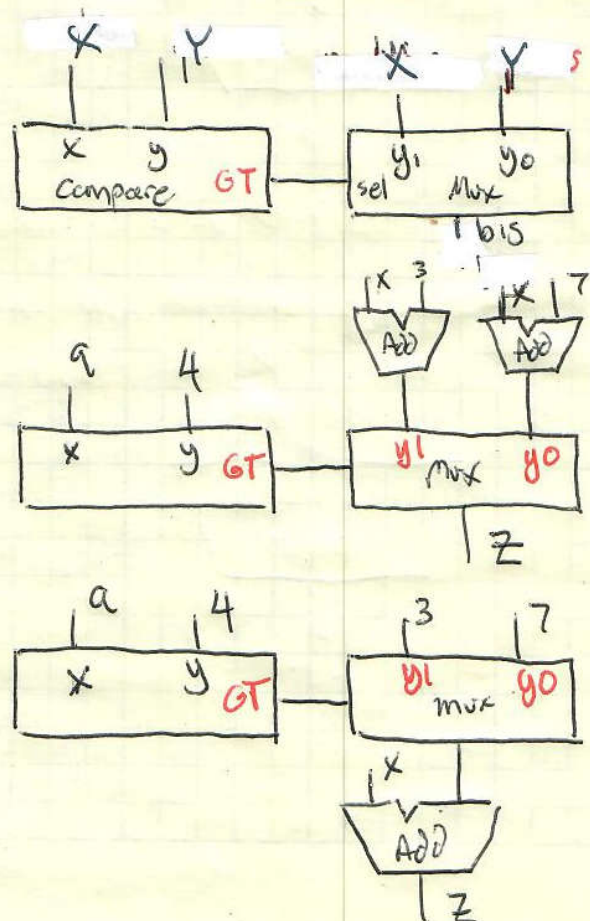 X Y X Y s
x y y1 y0
Compare GT sel Mux
big
x 3 x 7
Add Add
a 4
x y GT y1 Mux y0
Z
a 4 3 7
x y GT y1 mux y0
x
Add
Z